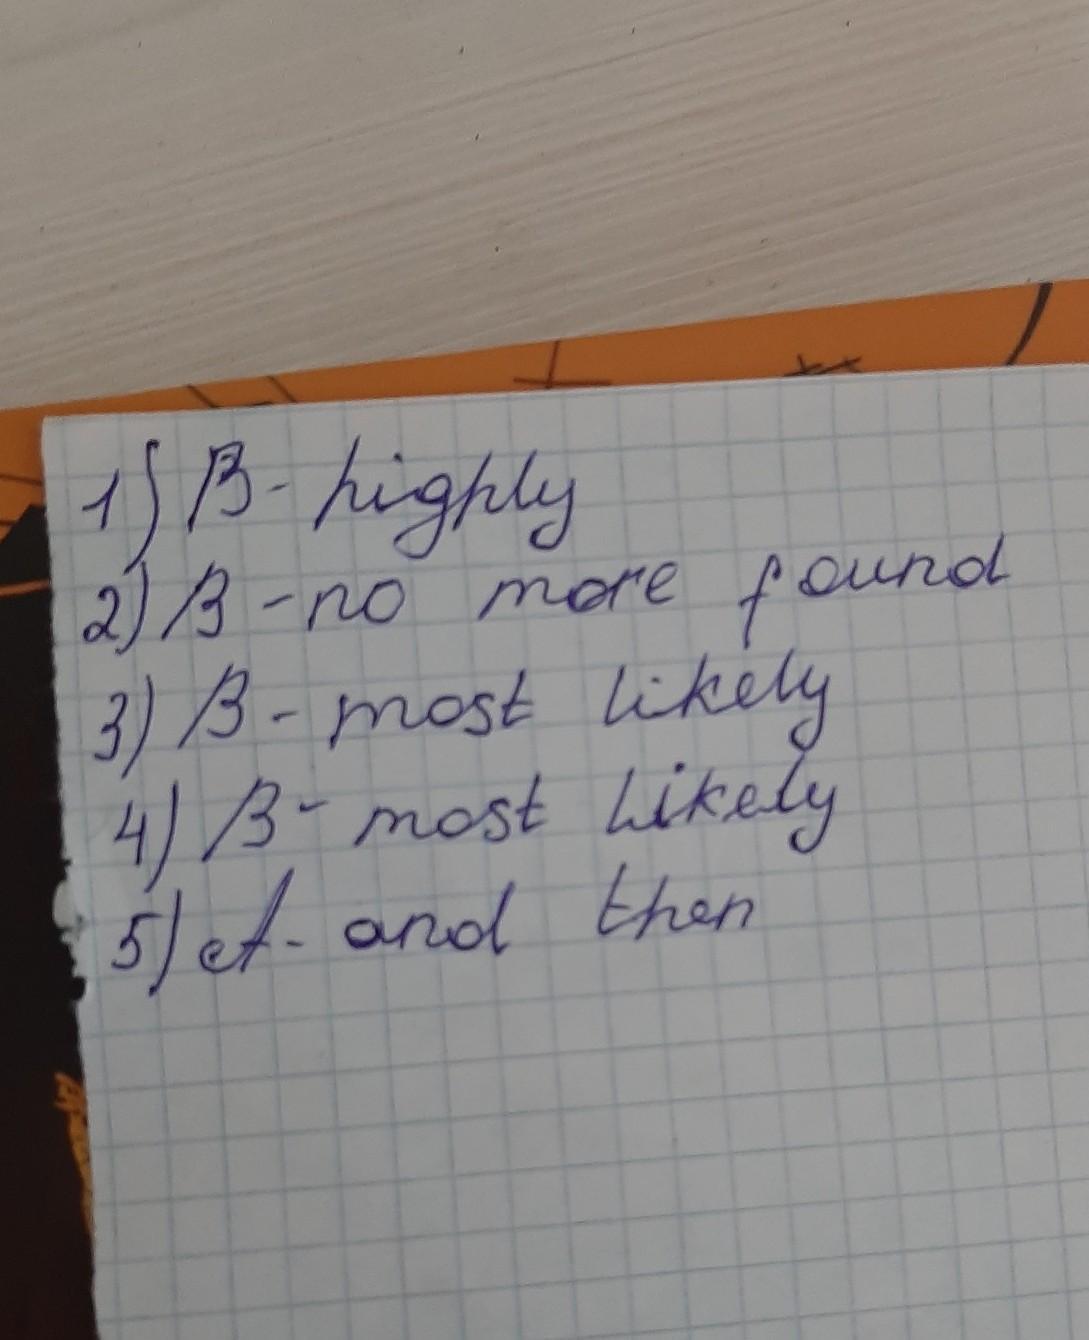 1) B - highly
2) B - no more found
3) B - most likely
4) B - most likely
5) A - and then